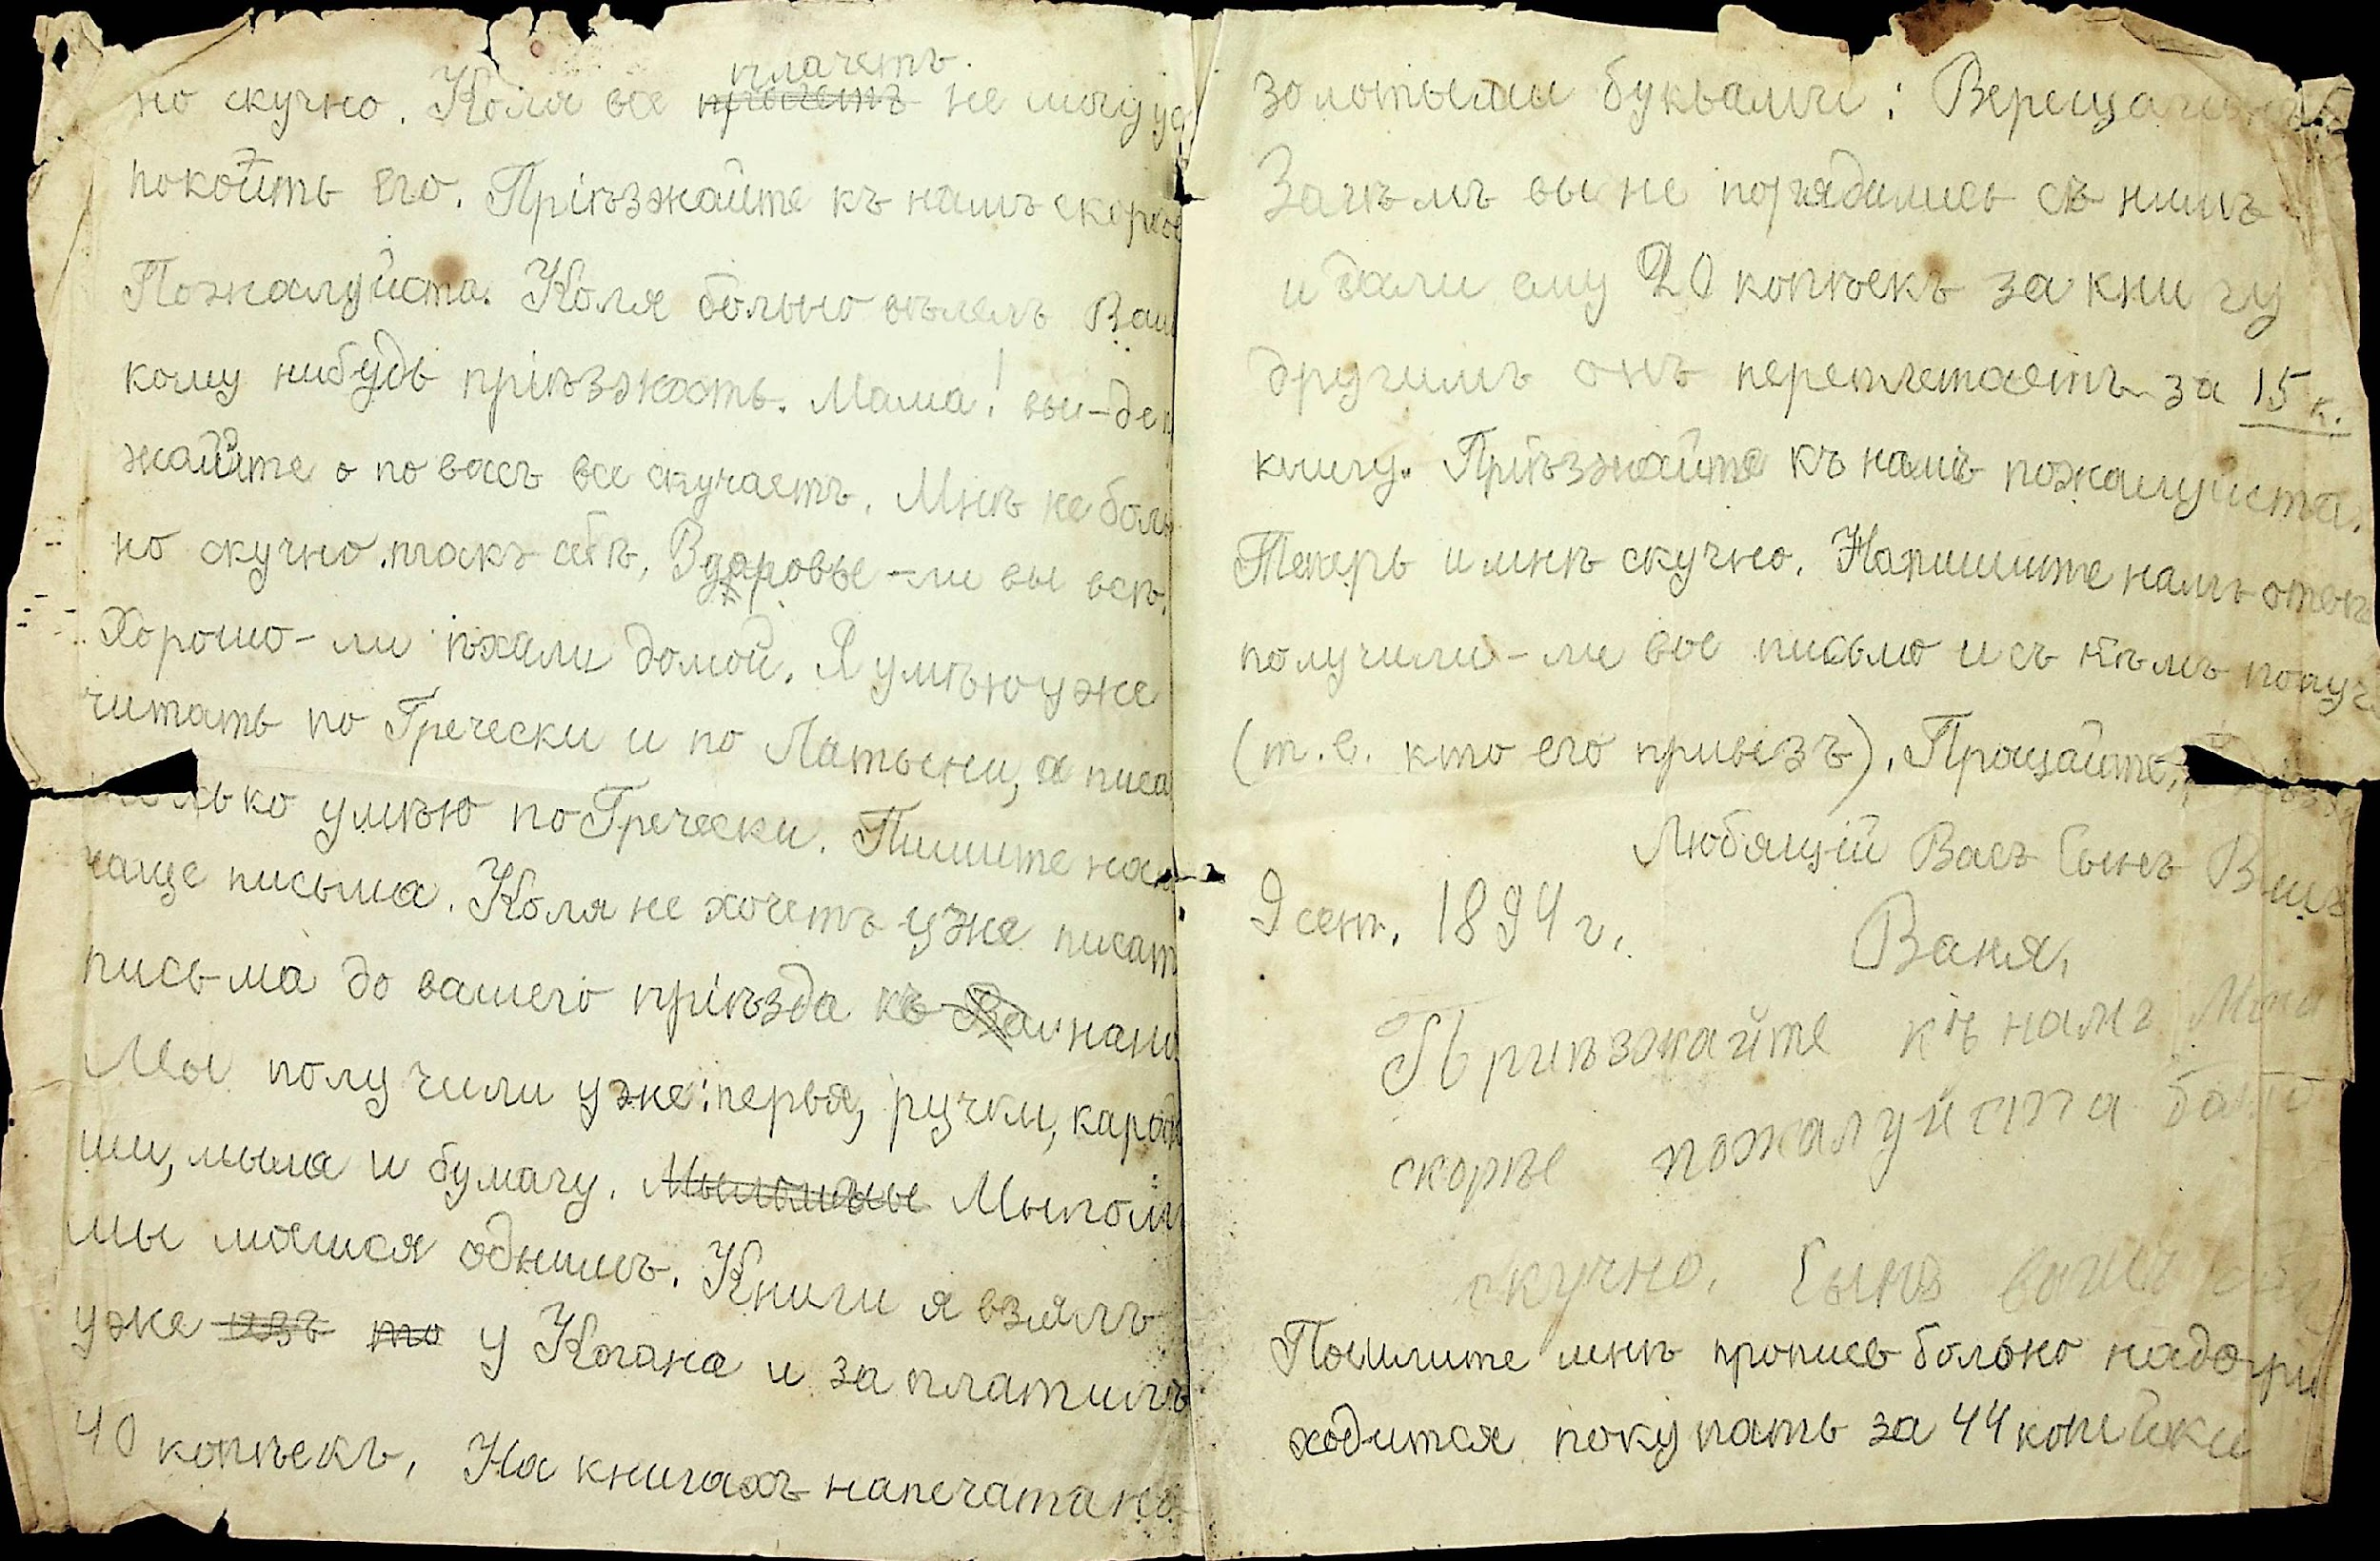 плачетъ.
но скучно. Коля все прочетъ не могу ус
покоить его. Пріѣзжайте къ намъ скорѣе
Пожалуйста. Коля больно вѣлелъ Вам
кому нибудь пріѣзжать. Мама! вы-де п
жайте о по васъ все скучаетъ. Мнѣ не боль
но скучно такъ себѣ, Здаровы-ли вы всѣ.
Хорошо-ли ѣхали домой. Я умѣю уже
читать по Гречески и по Латыни, а писа
только умѣю по Гречески. Пишите нам
чаще письма. Коля не хочетъ уже писат
письма до вашего пріѣзда къ нам
Мы получили уже: перья, ручки, каран
ши, мыла и бумагу. Мы
мы моимся однимъ. Книги я взялъ
уже изъ то у Когана и за платилъ
40 копѣекъ, На книгахъ напечатано
золотыми буквами: Верещагинъ
Зачѣмъ вы не порядились съ нимъ
и дали ему 20 копѣекъ за книгу
другимъ онъ переплетаетъ за 15 к.
книгу. Пріѣзжайте къ намъ пожалуйста.
Теперь и мнѣ скучно. Напишите намъ отвѣт
получили-ли вы письмо и съ кѣмъ получ
(т.е. кто его привезъ). Прощайте,
Любящій Васъ Сынъ Вашъ
9 сент. 1894 г.
Ваня,
Приѣзжайте къ намъ Мама
скорѣе пожалуйста
скучно. Сынъ вашъ
Пошлите мнѣ прописъ больно надо при
ходится покупать за 44 копейки